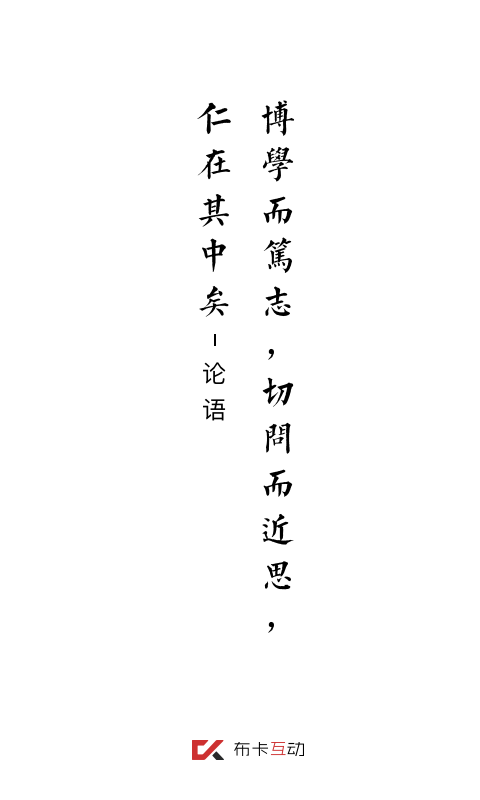 博學而篤志，切問而近思，
仁在其中矣-论语
布卡互动